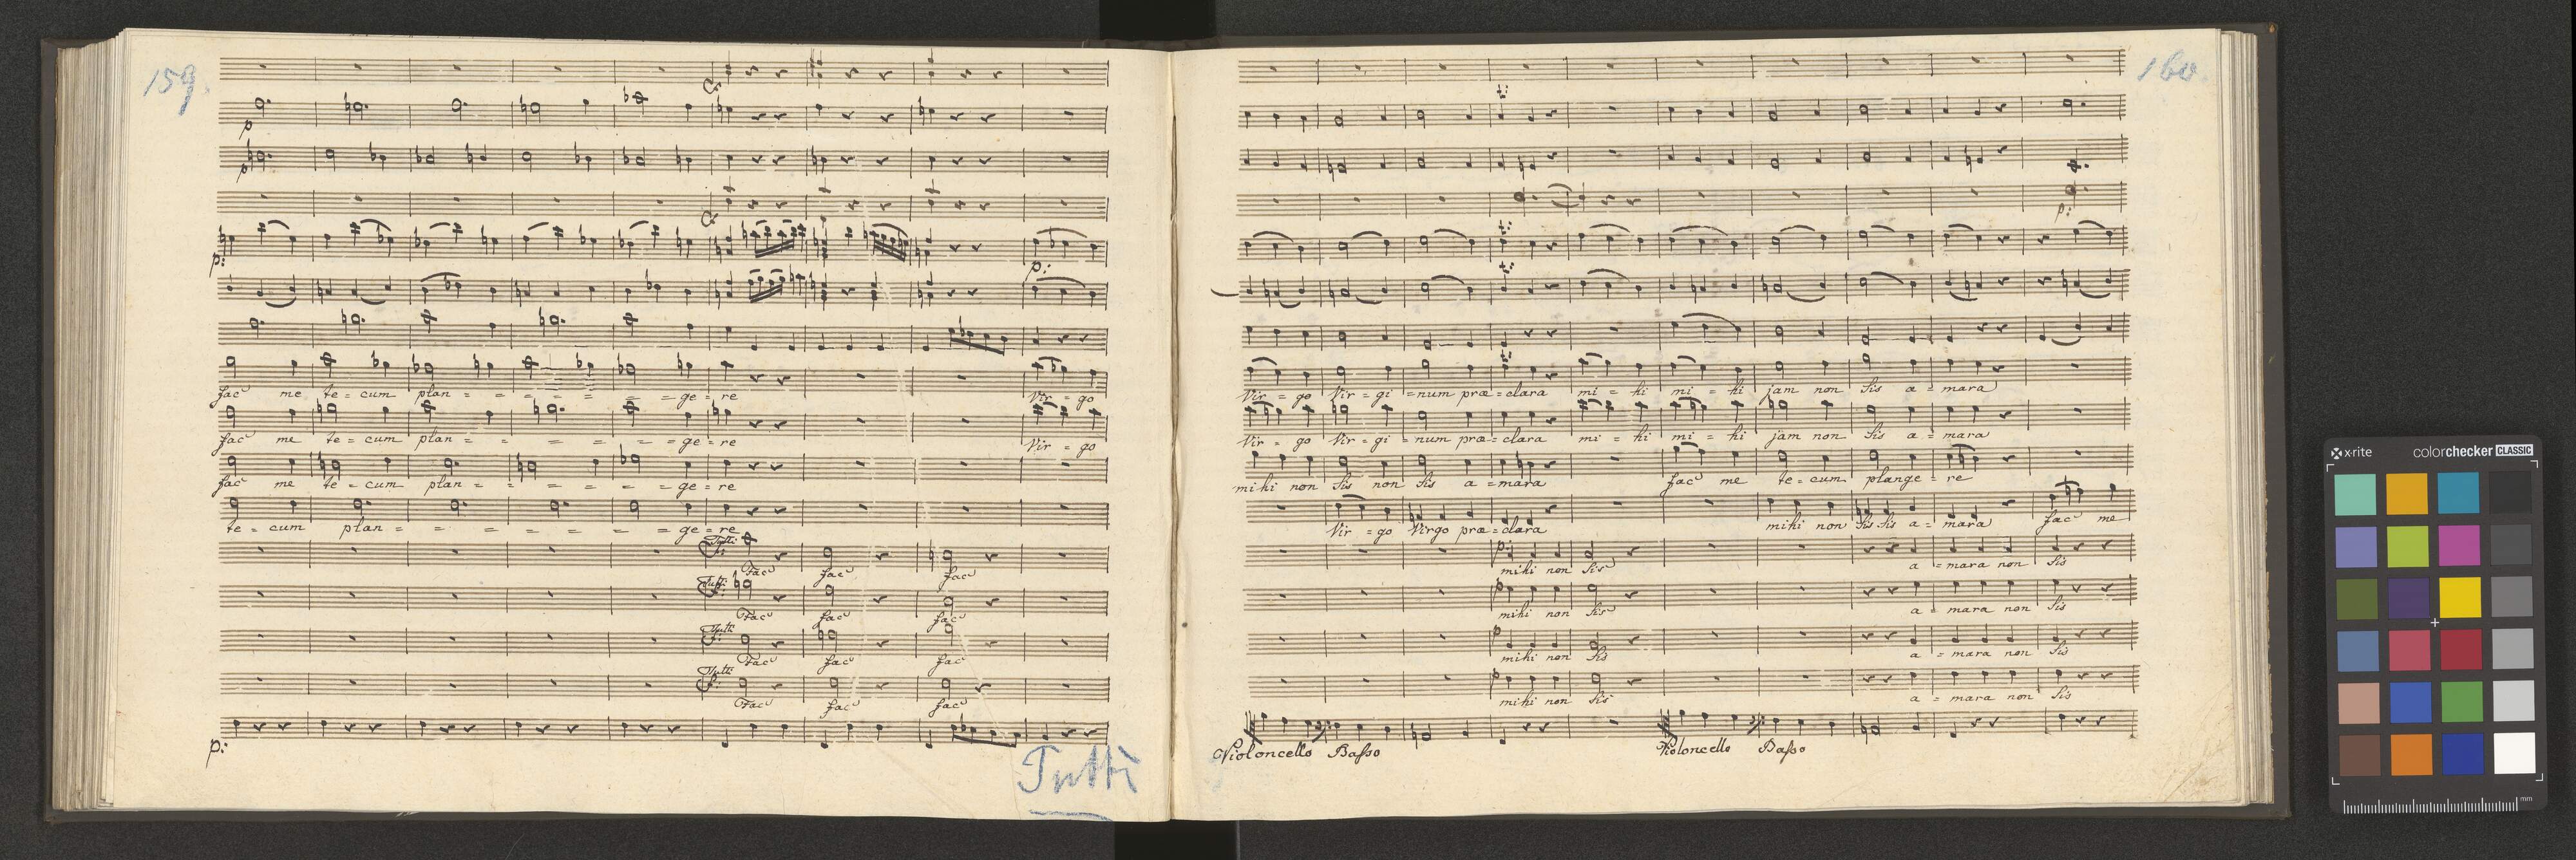 159.
p
p
p:
p:
fac me te = cum plan = = = = = = ge = re Vir = go
fac me te = cum plan = = = = = = ge = re Vir = go
fac me te = cum plan = = = = = = ge = re
te = cum plan = = = = = = = ge = re
Tutti f:
Fac fac fac
Tutti f:
Fac fac fac
Tutti f:
Fac fac fac
Tutti f:
Fac fac fac
p:
Tutti
160
p:
Vir = go Vir = gi = num præ = clara mi = hi mi = hi jam non sis a = mara
Vir = go Vir = gi = num præ = clara mi = hi mi = hi jam non sis a = mara
mihi non sis non sis a = mara fac me te = cum plange = re
Vir = go Virgo præ = clara mihi non sis sis a = mara fac me
p:
mihi non sis a = mara non sis
p
mihi non sis a = mara non sis
p
mihi non sis a = mara non sis
p
mihi non sis a = mara non sis
Violoncello Basso Violoncello Basso
x-rite colorchecker CLASSIC
mm